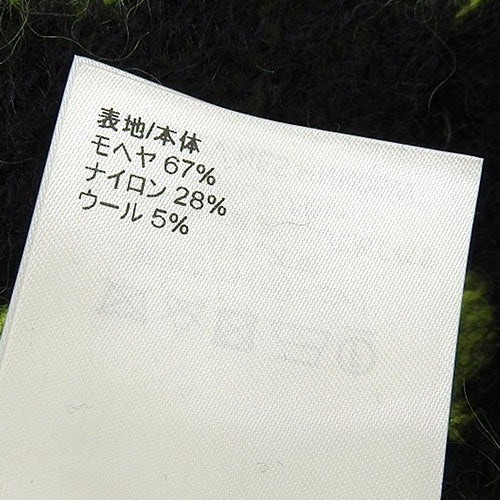 表地/本体
モヘヤ 67%
ナイロン 28%
ウール 5%